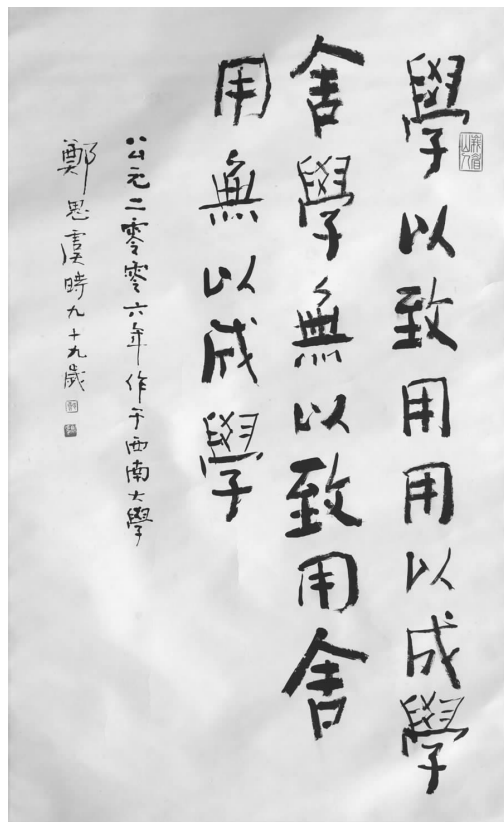 學以致用用以成學
舍學無以致用舍
用無以成學
公元二零零六年作于西南大學
鄭思虞時九十九歲